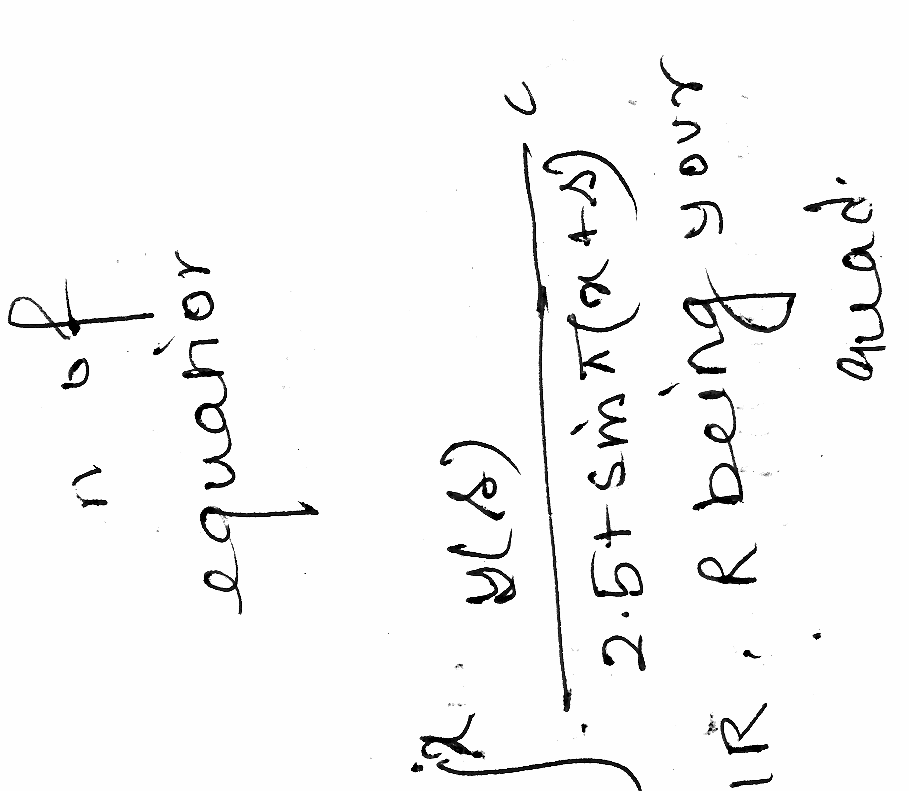 n of
equation
∫ y(s) / 2.5 + sin π(x + s)
IR. R being your
quad.